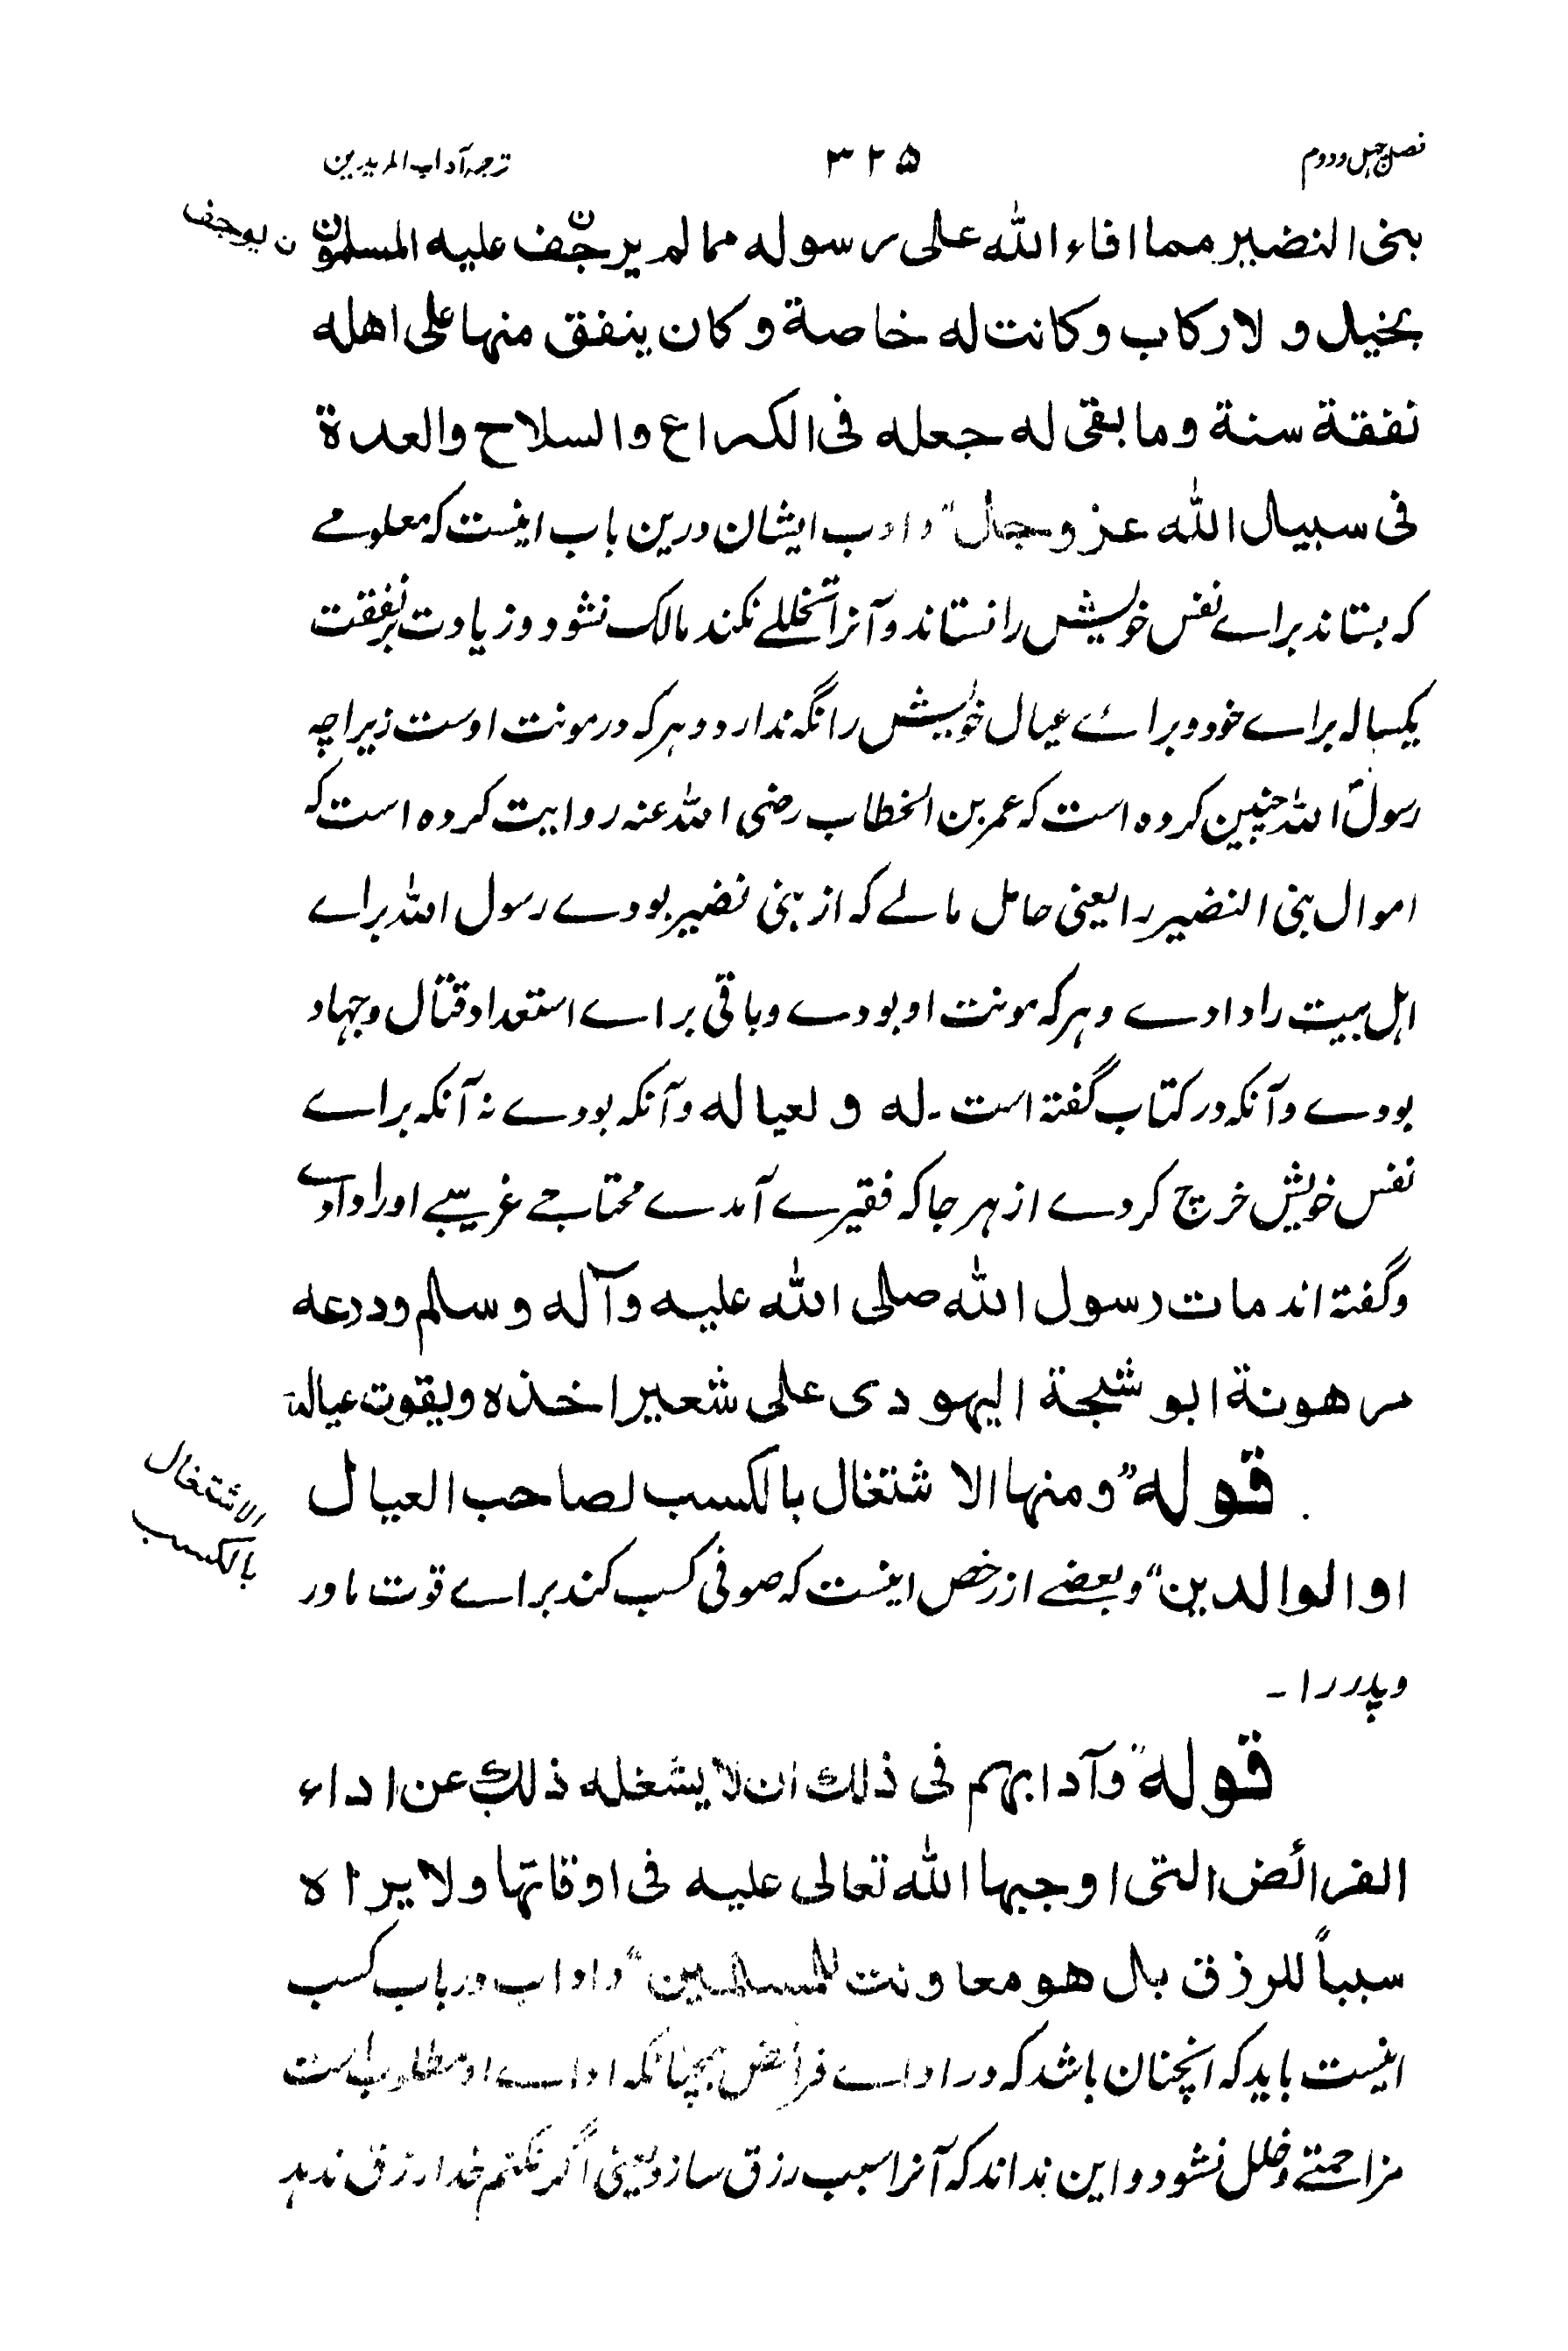 فصل چهل ودوم
۳۲۵
ترجمہ آداب المریدین
بنی النضیر مما افاء الله علی رسوله مما لم یرجف علیه المسلمون
ن یوجف
بخیل و لا رکاب و کانت له خاصة و کان ینفق منها علی اهله
نفقة سنة وما بقی له جعله فی الکراع والسلاح والعدة
فی سبیل الله عز و جل" و ادب ایشان درین باب اینست که معلومے
که بستاند براے نفس خویش را نستاند و آنرا تخللے نکند مالک نشود و زیادت بر نفقت
یکساله براے خود و براے عیال خویش را نگه ندارد و هرکه در مونت اوست زیراچه
رسولؐ الله چنین کرده است که عمر بن الخطاب رضی الله عنه روایت کرده است که
اموال بنی النضیر را یعنی حامل مالے که از بنی نضیر بودے رسول الله براے
اهل بیت را دادے و هرکه مونت او بودے و باقی براے استعداد قتال و جهاد
بودے و آنکه در کتاب گفته است ۔ له و لعیاله و آنکه بودے نه آنکه براے
نفس خویش خرچ کردے از هر جا که فقیرے آمدے محتاجے غریبے اورا دادے
و گفته اند مات رسول الله صلی الله علیه وآله و سلم ودرعه
مرهونة ابو شجة الیهودی علی شعیر اخذه ویقوت عیاله
قوله" ومنها الاشتغال بالکسب لصاحب العیال
الاشتغال
بالکسب
او الوالدین" و بعضے از رخص اینست که صوفی کسب کند براے قوت مادر
و پدر را ۔
قوله" وآدابهم فی ذلك ان لا یشغله ذلك عن اداء
الفرائض التی اوجبها الله تعالی علیه فی اوقاتها ولا یراه
سبباً للرزق بل هو معاونت للمسلمین" و اداب در باب کسب
اینست باید که انچنان باشد که در اداے فرائض همچنانکه اداے او مطلوب است
مزاحمتے و خلل نشود و این نداند که آنرا سبب رزق سازد یعنی اگر نکنم خدا رزق ندهد